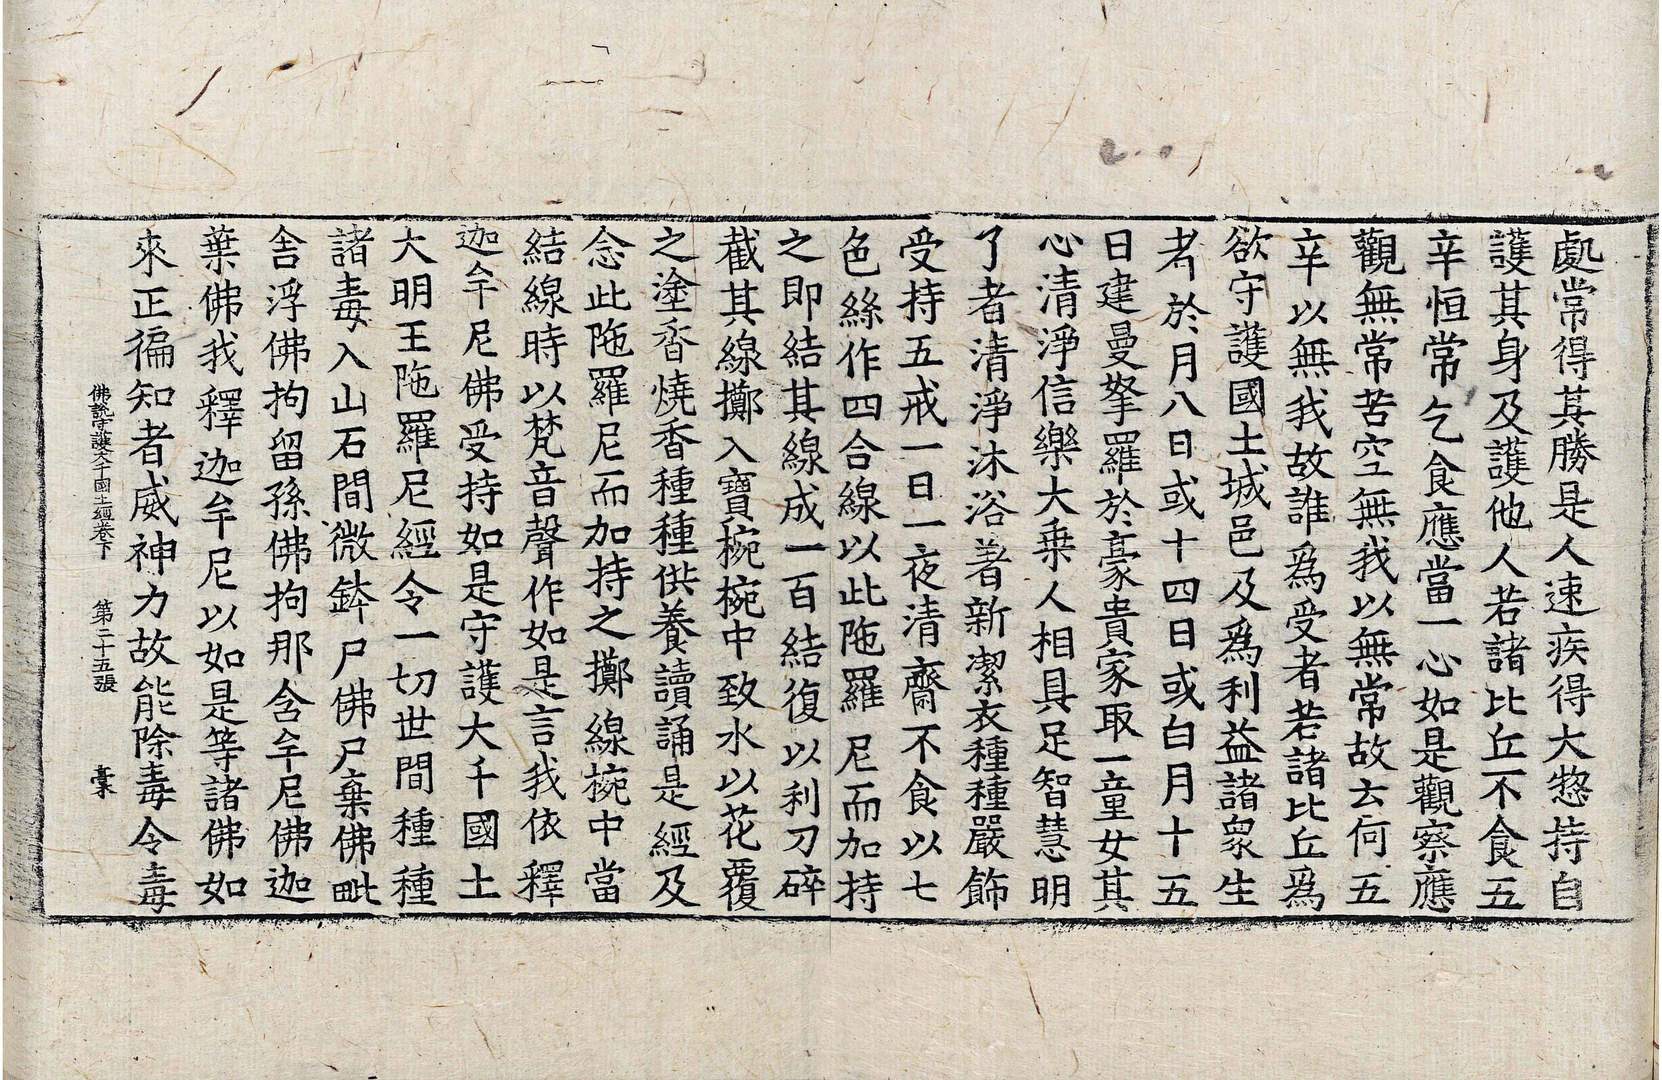 處常得其勝是人速疾得大惣持自
護其身及護他人若諸比丘不食五
辛恒常乞食應當一心如是觀察應
觀無常苦空無我以無常故云何五
辛以無我故誰爲受者若諸比丘爲
欲守護國土城邑及爲利益諸衆生
者於月八日或十四日或白月十五
日建曼拏羅於豪貴家取一童女其
心清淨信樂大乗人相具足智慧明
了者清淨沐浴著新潔衣種種嚴飾
受持五戒一日一夜清齋不食以七
色絲作四合線以此陁羅尼而加持
之即結其線成一百結復以利刀碎
截其線擲入寶椀椀中致水以花覆
之塗香燒香種種供養讀誦是經及
念此陁羅尼而加持之擲線椀中當
結線時以梵音聲作如是言我依釋
迦牟尼佛受持如是守護大千國土
大明王陁羅尼經令一切世間種種
諸毒入山石間微鉢尸佛尸棄佛毗
舍浮佛拘留孫佛拘那含牟尼佛迦
葉佛我釋迦牟尼以如是等諸佛如
來正徧知者威神力故能除毒令毒
佛說守護大千國土經卷下 第二十五張 槖